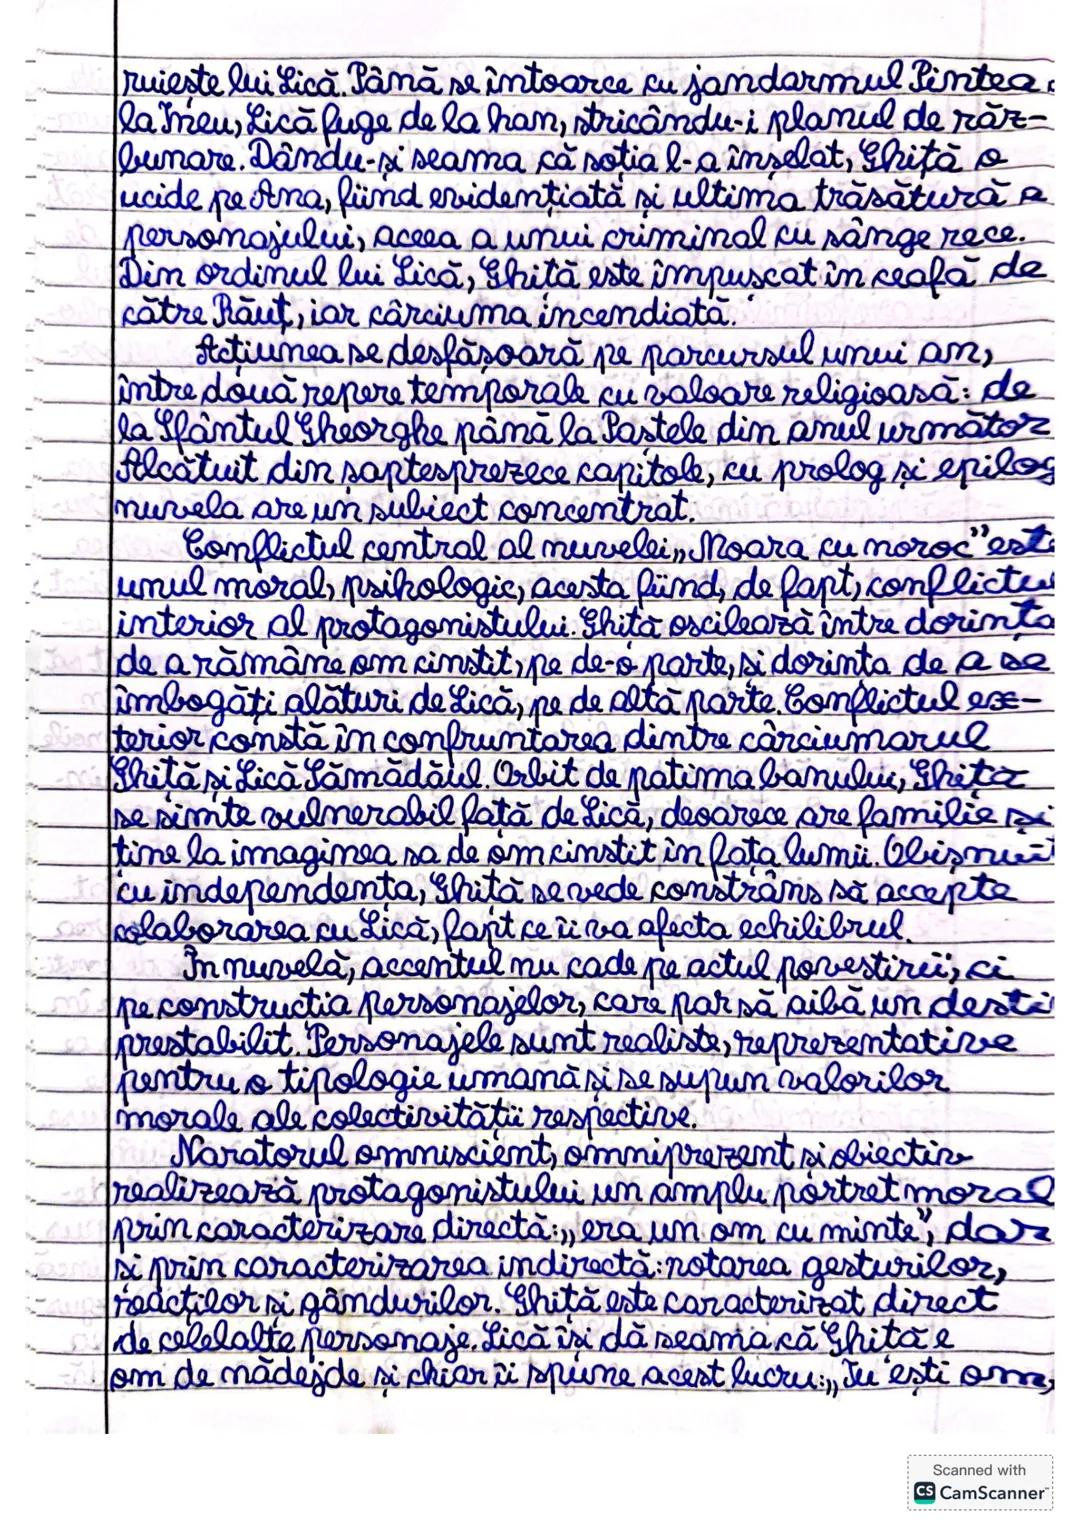 ruiește lui Lică. Până se întoarce cu jandarmul Pintea
la Ineu, Lică fuge de la han, stricându-i planul de răz-
bunare. Dându-și seama că soția l-a înșelat, Ghiță o
ucide pe Ana, fiind evidențiată și ultima trăsătură a
personajului, aceea a unui criminal cu sânge rece.
Din ordinul lui Lică, Ghiță este împușcat în ceafă de
către Răuț, iar cârciuma incendiată.
Acțiunea se desfășoară pe parcursul unui an,
între două repere temporale cu valoare religioasă: de
la Sfântul Gheorghe până la Paștele din anul următor
Alcătuit din șaptesprezece capitole, cu prolog și epilog
nuvela are un subiect concentrat.
Conflictul central al nuvelei „Moara cu noroc" este
unul moral, psihologic, acesta fiind, de fapt, conflictul
interior al protagonistului. Ghiță oscilează între dorința
de a rămâne om cinstit, pe de-o parte, și dorința de a se
îmbogăți alături de Lică, pe de altă parte. Conflictul ex-
terior constă în confruntarea dintre cârciumarul
Ghiță și Lică Sămădăul. Orbit de patima banului, Ghiță
se simte vulnerabil față de Lică, deoarece are familie și
ține la imaginea sa de om cinstit în fața lumii. Obișnuit
cu independența, Ghiță se vede constrâns să accepte
colaborarea cu Lică, fapt ce îi va afecta echilibrul.
În nuvelă, accentul nu cade pe actul povestirii, ci
pe construcția personajelor, care par să aibă un desti
prestabilit. Personajele sunt realiste, reprezentative
pentru o tipologie umană și se supun valorilor
morale ale colectivității respective.
Naratorul omniscient, omniprezent și obiectiv
realizează protagonistului un amplu portret moral
prin caracterizare directă: „era un om cu minte", dar
și prin caracterizarea indirectă: notarea gesturilor,
reacților și gândurilor. Ghiță este caracterizat direct
de celelalte personaje. Lică își dă seama că Ghiță e
om de nădejde și chiar îi spune acest lucru: „Tu ești om,
Scanned with
CS CamScanner